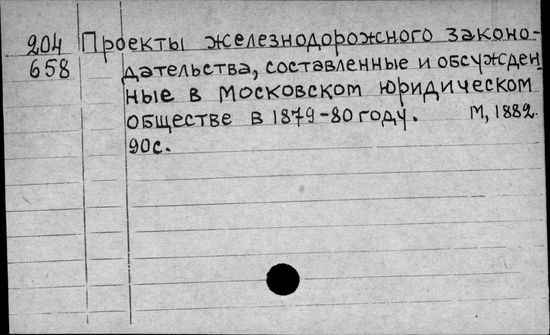 204 Проекты железнодорожного законо-
658 дательства, составленные и обсужден-
ные в Московском юридическом
обществе в 1879-80 году. М, 1882.
90с.